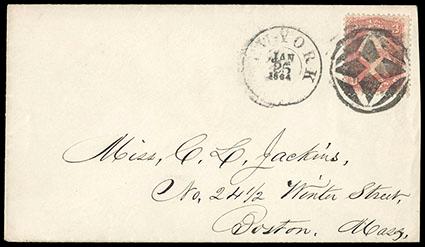 NEW-YORK
JAN
25
1864
3
Miss, C. L. Jackins,
No, 24 1/2 Winter Street,
Boston. Mass,